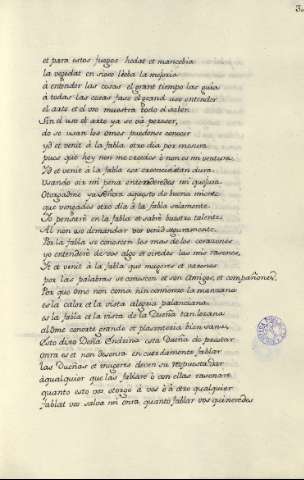 et para estos juegos hedat et mancebia
la vejedat en sieso lleba la mejoria
à entender las cosas el grant tiempo las guia
à todas las cosas fase el grand uso entender
el arte et el uso muestra todo el saber
sin el uso et arte ya se va perescer,
do se usan los omes puedense conocer
yd et venit à la fabla otro dia por mesura
pues que hoy non me creedes ò non es mi ventura.
Yd et venir à la fabla esa creencia tan dura
Usando oir mi pena entenderedes mi quejura
Otorgadme ya señora aquesto de buena miente
que vengades otro dia à la fabla solamente.
Yo pensaré en la fabla et sabré buestro talente
Al non uso demandar vos venid seguramente.
Por la fabla se conoscen los mas de los corazones
yo entenderé de vos algo et oiredes las mis rasones,
It et venit à la fabla que mugeres et varones
por las palabras se conoscen et son Amigos, et compañones.
Por que ome non coma nin comience la manzana
es la color et la vista alegria palanciana.
es la fabla et la vista de la Dueña tan lozana
al Ome conorte grande et plasenteria bien sana,
Esto dixo Doña Endrina esta Dueña de prestar
onra es et non desonra en cuerdamente fablar
las Dueñas et mugeres deven su repuesta dar
à qualquier que las fablare ò con ellas rasonare
quanto esto vos otorgo à vos ò à otro qualquier
fablat vos salva mi onra quanto fablar vos quixeredes